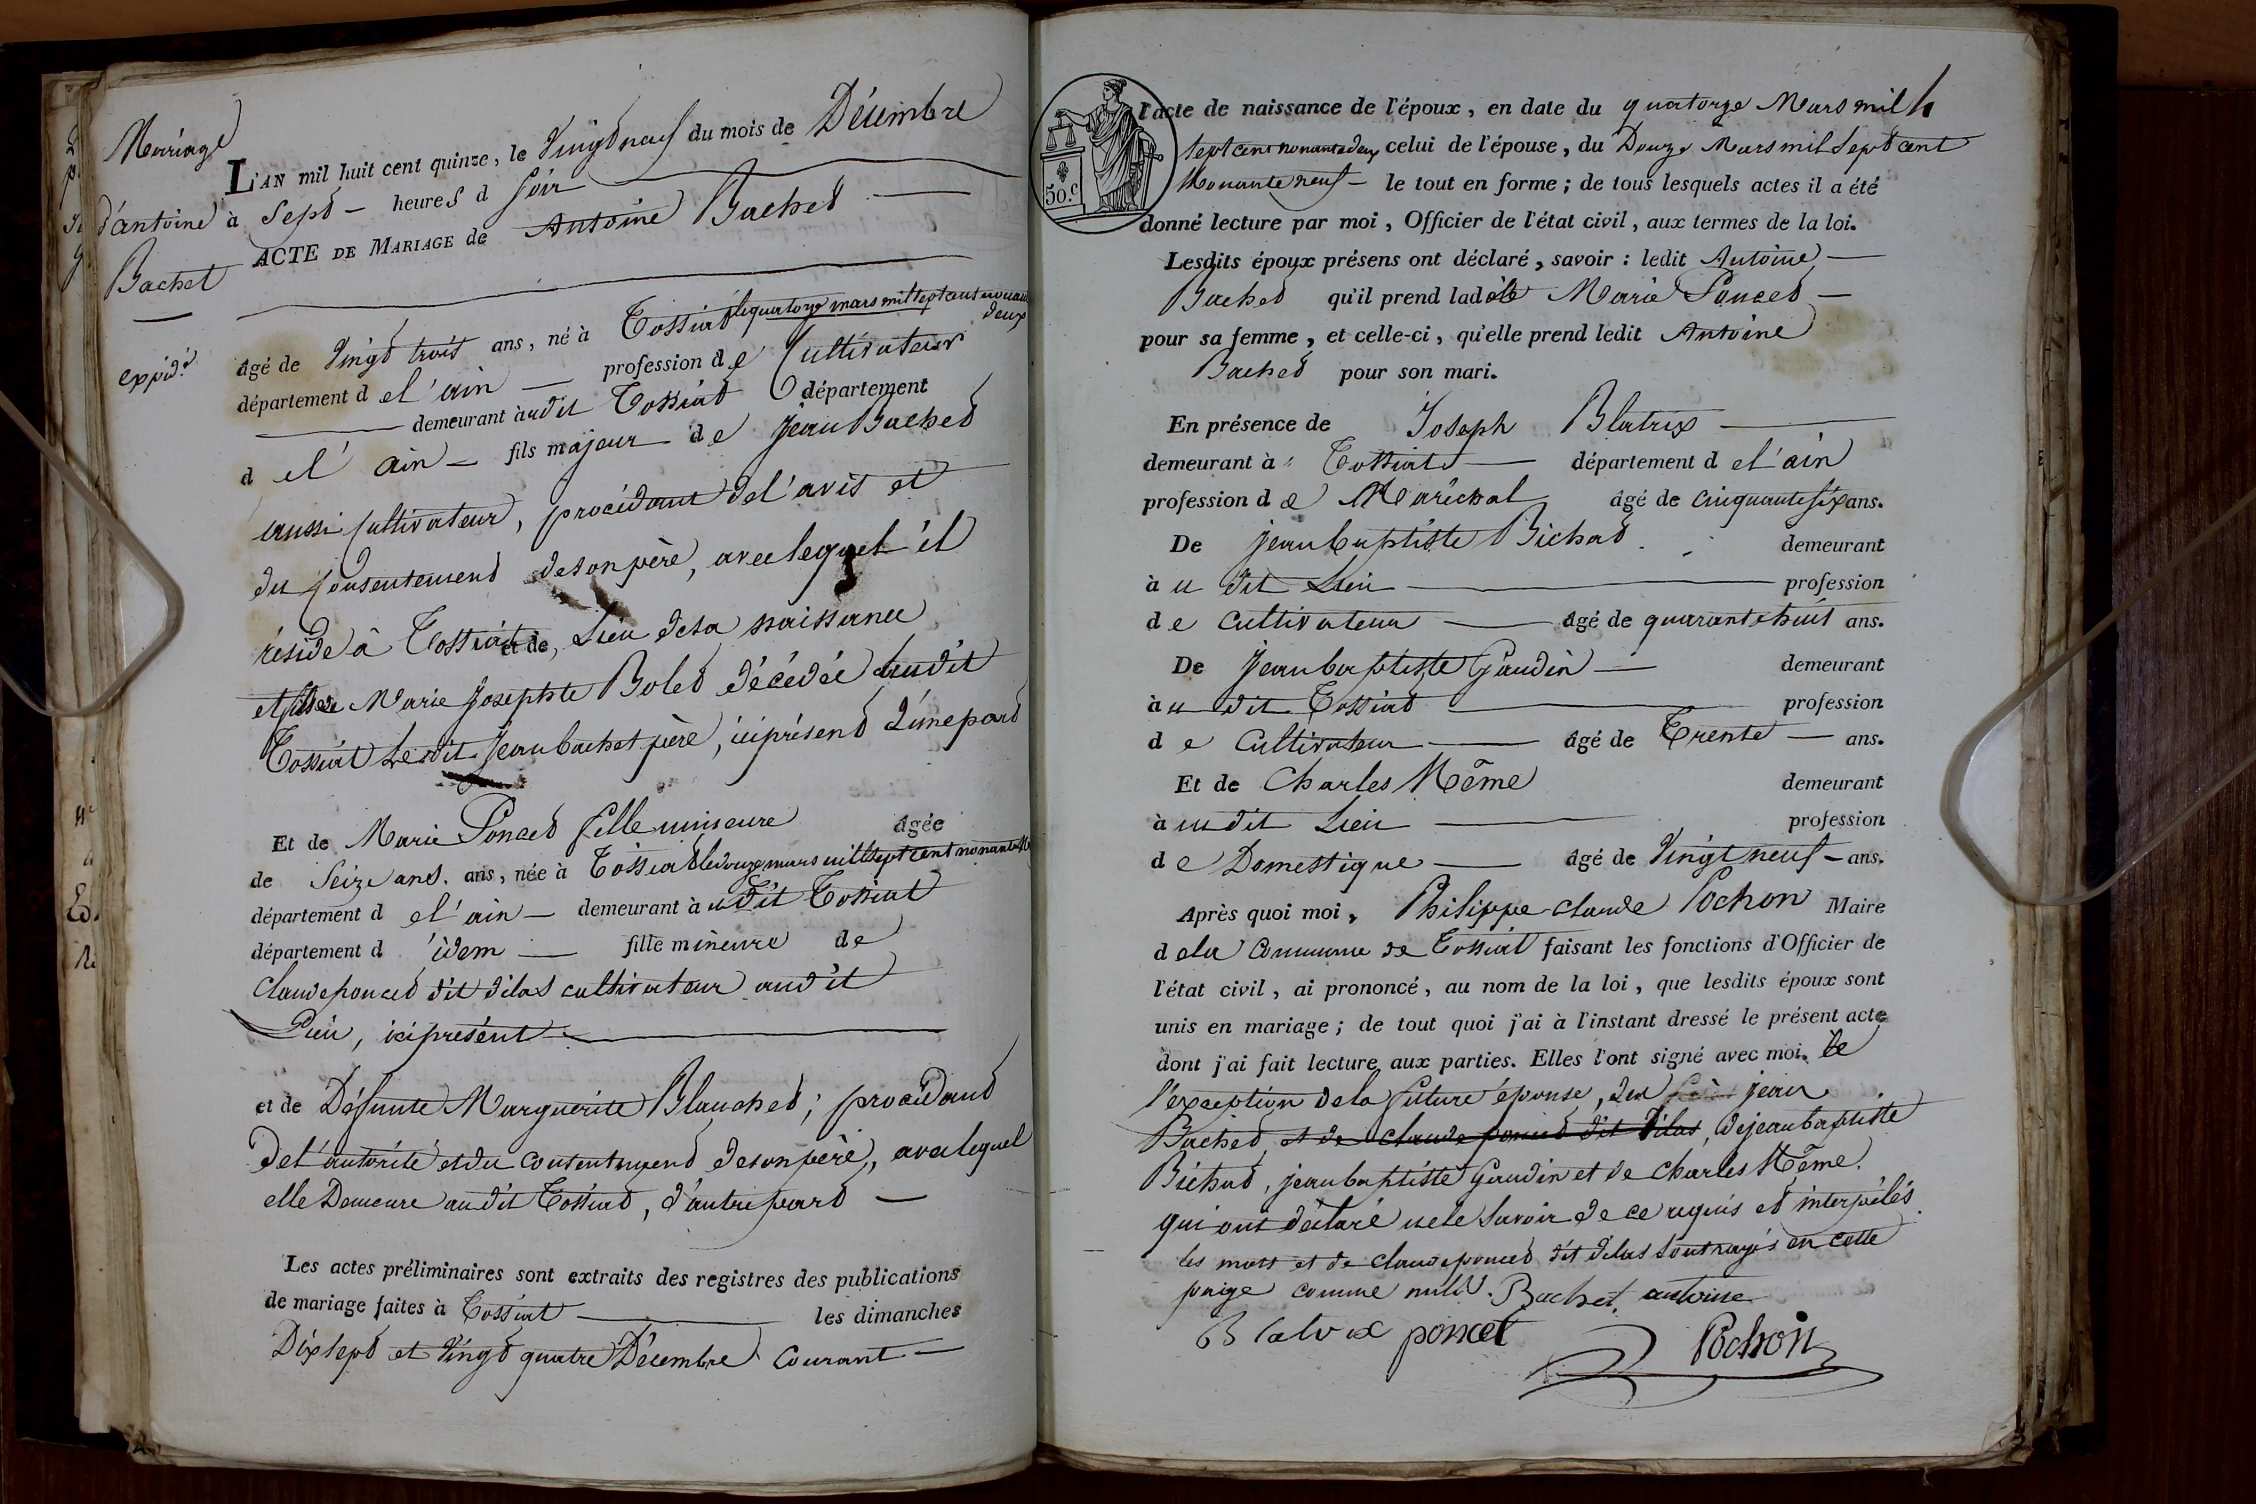 Mariage
d'antoine
Bachet
expéd.é
L'AN mil huit cent quinze, le Vingt neuf du mois de Décembre
à Sept – heures d Soir
ACTE DE MARIAGE de Antoine Bachet
âgé de Vingt trois ans, né à Tossiat le quatorze mars mil sept cent nonante deux
département d el'ain — profession de Cultivateur
demeurant à udit Tossiat département
d el'ain — fils majeur de Jean Bachet
aussi Cultivateur, procédant del'avis et
du Consentement deson père, avec lequel il
réside à Tossiat, Lieu desa naissance
et de
et fils de Marie Josephte Bolet décédée audit
Tossiat Le dit Jean bachet père, ici présent d'une part
Et de Marie Poncet fille mineure âgée
de Seize ans. ans, née à Tossiat le douze mars mil sept cent nonante
département d el'ain — demeurant à udit Tossiat
département d idem — fille mineure de
Claude poncet dit dilas cultivateur audit
Lieu, ici présent
et de Défunte Marguerite Blanchet; procédant
Del'autorité et du consentement deson père, avec lequel
elle Demeure audit Tossiat, d'autre part —
Les actes préliminaires sont extraits des registres des publications
de mariage faites à Tossiat les dimanches
Dix sept et Vingt quatre Décembre Courant —
50.c
l'acte de naissance de l'époux, en date du quatorze Mars mil
sept cent nonante deux celui de l'épouse, du Douze Mars mil Sept cent
Nonante neuf – le tout en forme; de tous lesquels actes il a été
donné lecture par moi, Officier de l'état civil, aux termes de la loi.
Lesdits époux présens ont déclaré, savoir: ledit Antoine —
Bachet qu'il prend ladite Marie Poncet —
pour sa femme, et celle-ci, qu'elle prend ledit Antoine
Bachet pour son mari.
En présence de Joseph Blatrix
demeurant à Tossiat — département d el'ain
profession de Maréchal âgé de cinquante six ans.
De jean baptiste Bichat demeurant
à u dit Lieu profession
de cultivateur — âgé de quarante huit ans.
De Jean baptiste Gaudin — demeurant
à u dit Tossiat profession
de Cultivateur — âgé de Trente — ans.
Et de Charles Même demeurant
à u dit Lieu profession
de Domestique — âgé de Vingt neuf – ans.
Après quoi moi, Philippe claude Pochon Maire
dela Commune de Tossiat faisant les fonctions d'Officier de
l'état civil, ai prononcé, au nom de la loi, que lesdits époux sont
unis en mariage; de tout quoi j'ai à l'instant dressé le présent acte
dont j'ai fait lecture aux parties. Elles l'ont signé avec moi. à
l'exception dela future épouse, du jean
Bachet, et de claude poncet dit dilas, de jean baptiste
Bichat, jean baptiste Gaudin et de charles Même.
qui ont déclaré nele Savoir de ce requis et interpélés
les mots et de claude poncet dit dilas Soutrayés en cette
page comme nuls. Bachet antoine
Blatrix poncet Pochon